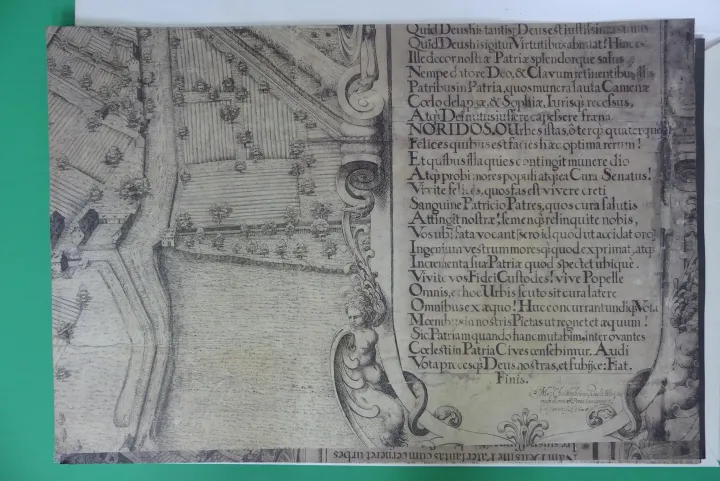 Quid Deus his tantis; Deus est
Quid Deus his igitur Virtutibus abnuat! Hinc est
Ille decor nostræ Patriæ splendorque salus
Nempe datore Deo, & Clavum retinentibus illis
Patribus in Patria, quos munera lauta Camenæ
Cœlo delapsæ, & Sophiæ, Jurisq; recessus,
Atq; Dei nutus iussere capessere fræna.
NORIDOS, O Urbes istas, ô terq; quaterque
Felices quibus est facies hæc optima rerum!
Et quibus illa quies contingit munere dio
Atq; probi mores populi atq; ea Cura Senatus!
Vivite felices, quos fas est vivere creti
Sanguine Patricio Patres, quos cura salutis
Attingit nostræ! semenq; relinquite nobis,
Vos ubi fata vocant, sero id quod ut accidat oro;
Ingenium vestrum moresq; quod exprimat, atq;
Incrementa suæ Patriæ quod spectet ubique.
Vivite vos Fidei Custodes! vive Popelle
Omnis, et hoc Urbis scuto sit cura latere
Omnibus ex æquo! Huc concurrant undiq; Vota
Mœnibus in nostris Pietas ut regnet et æquum!
Sic Patriam quando hanc mutabim, inter ovantes
Cœlesti in Patria Cives censebimur. Audi
Vota precesq; Deus nostras, et subijce: Fiat.
Finis.